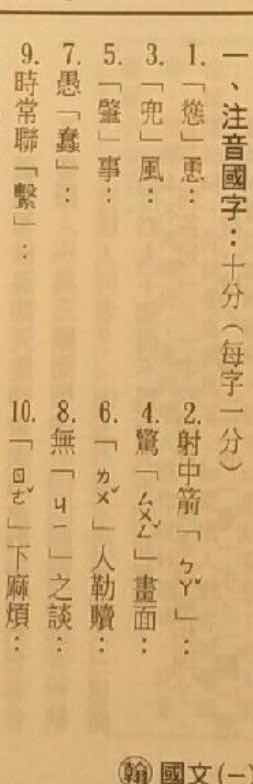 一、注音國字：十分（每字一分）
1.「慫」恿：
2.射中箭「ㄅㄚˇ」：
3.「兜」風：
4.驚「ㄙㄨㄥˇ」畫面：
5.「肇」事：
6.「ㄌㄨˇ」人勒贖：
7.愚「蠢」：
8.無「ㄐㄧ」之談：
9.時常聯「繫」：
10.「ㄖㄜˇ」下麻煩：
翰 國文(一)